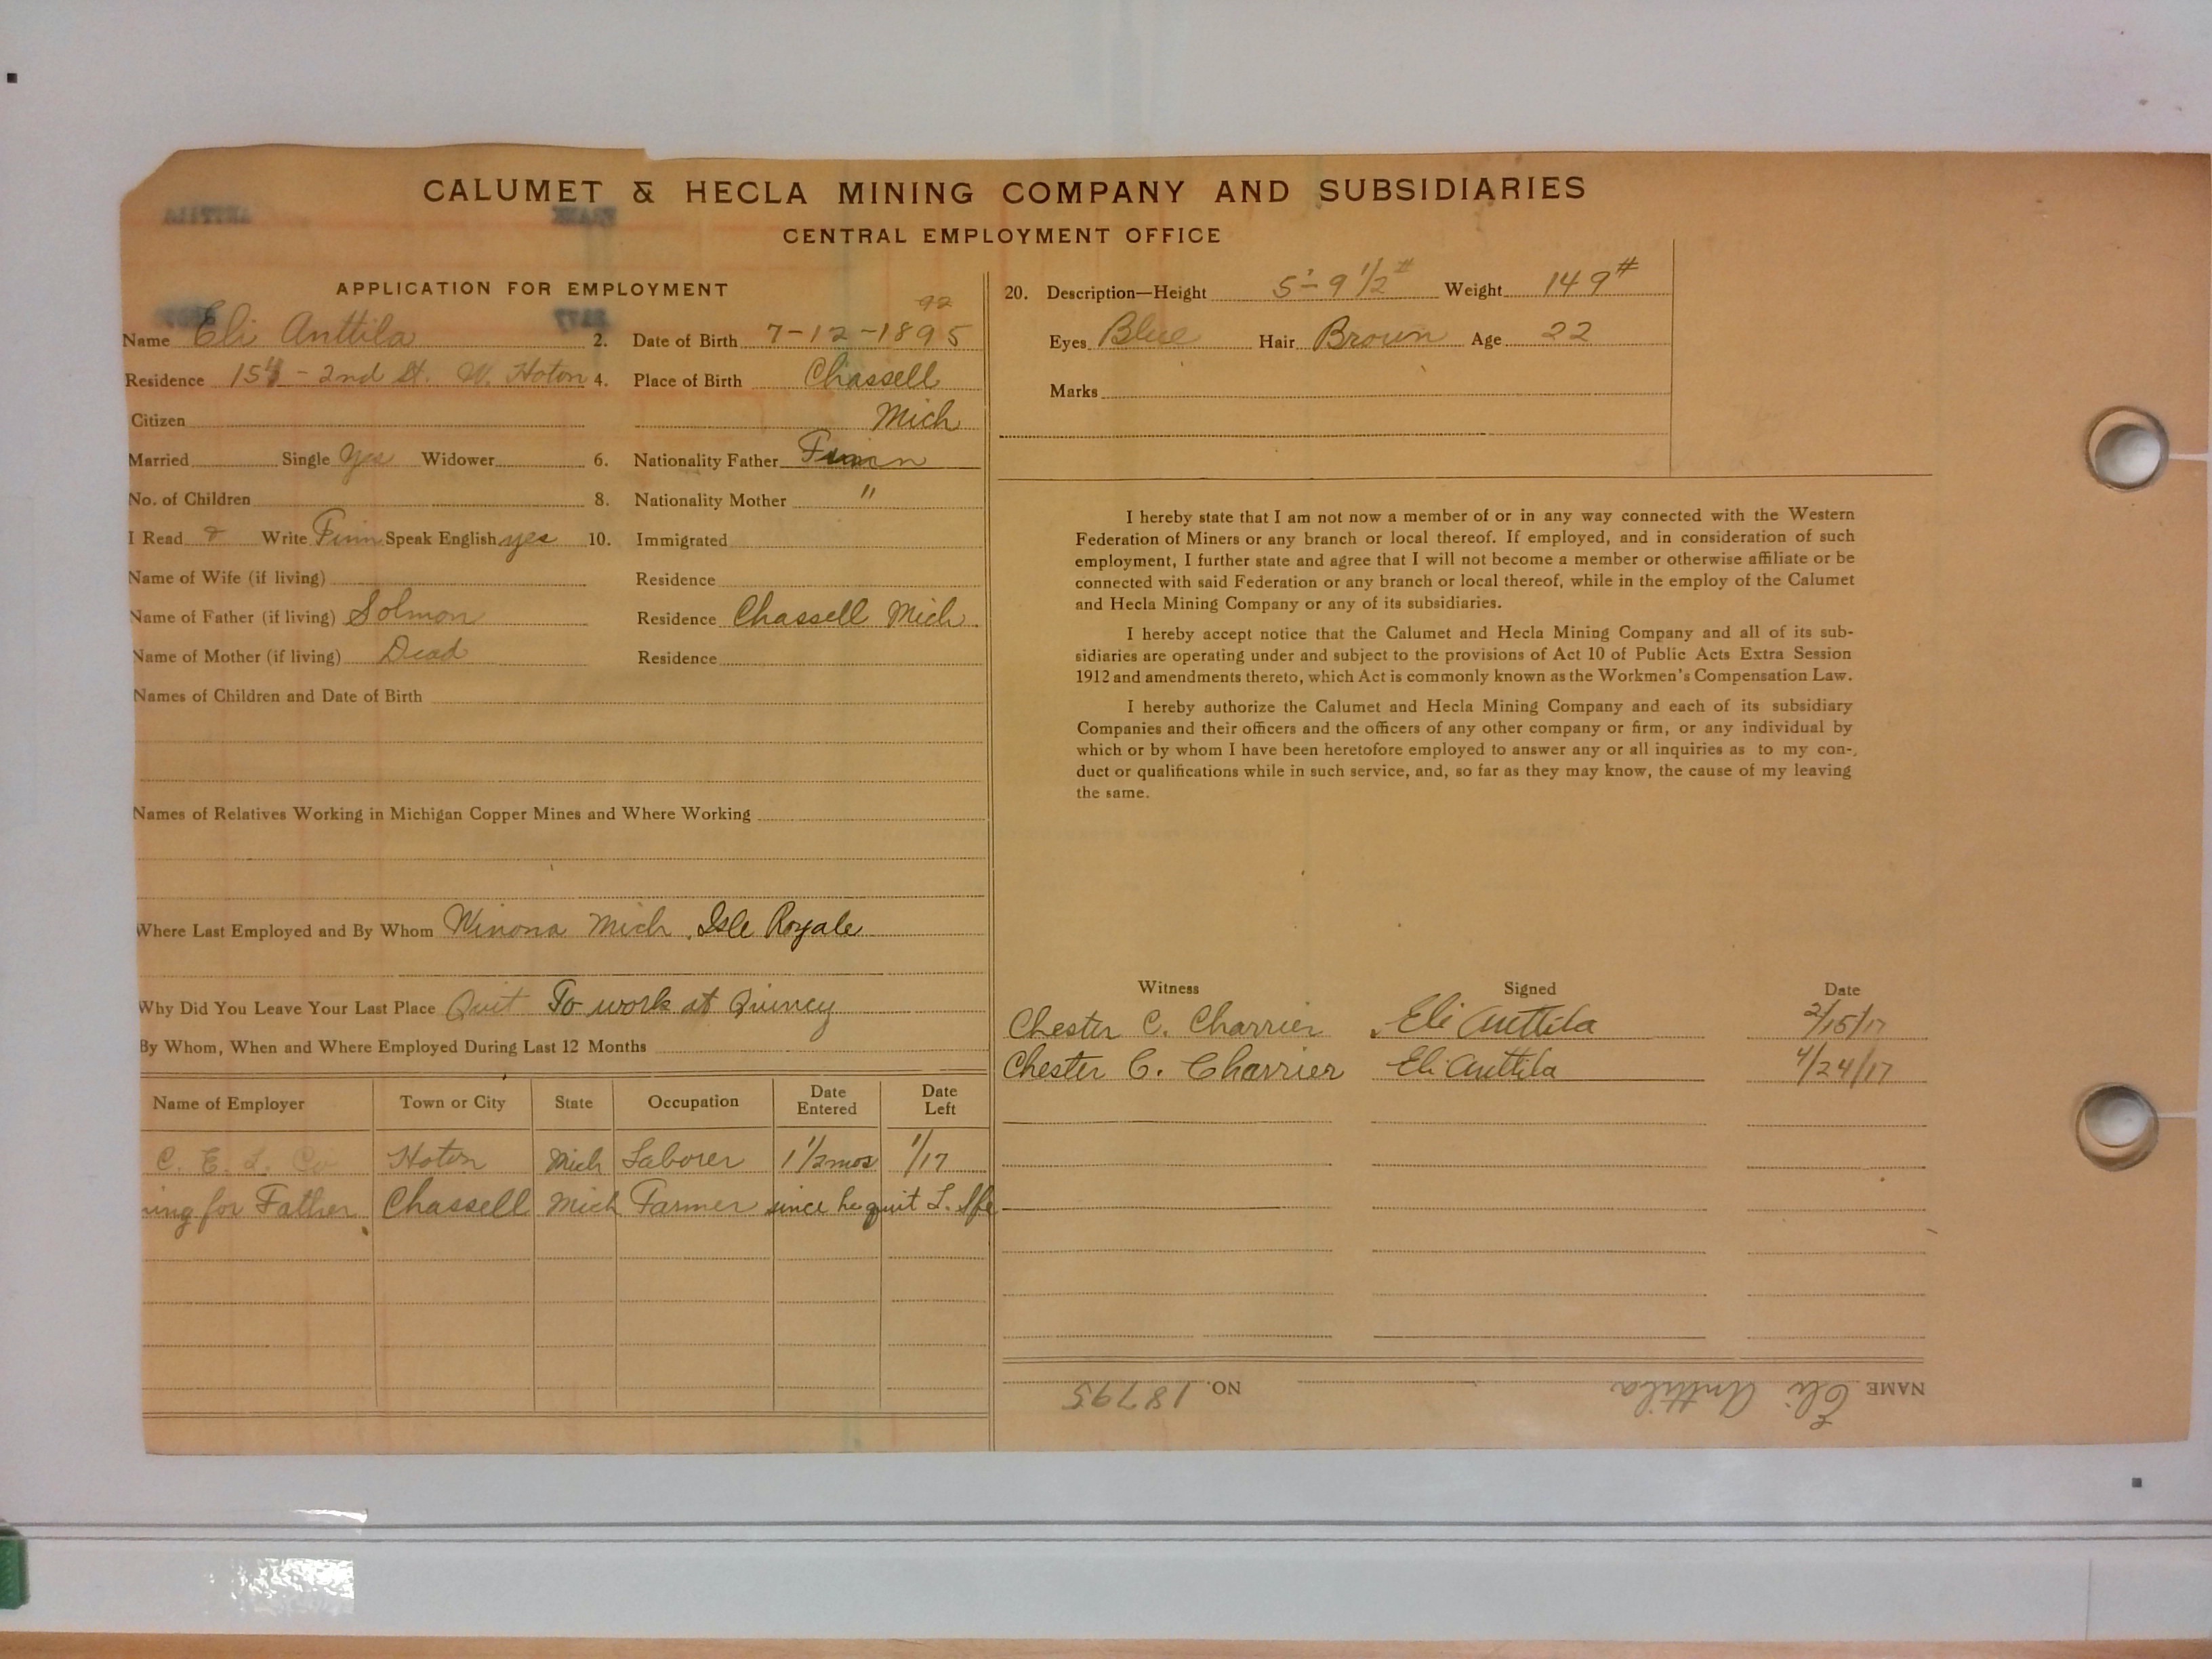 CALUMET & HECLA MINING COMPANY AND SUBSIDIARIES
CENTRAL EMPLOYMENT OFFICE
APPLICATION FOR EMPLOYMENT
92
Name Eli Anttila 2. Date of Birth 7-12-1895
Residence 2nd St. W. Hoton 4. Place of Birth Chassell
Citizen Mich
Married Single Yes Widower 6. Nationality Father Finn
No. of Children 8. Nationality Mother "
I Read & Write Finn Speak English yes 10. Immigrated
Name of Wife (if living) Residence
Name of Father (if living) Solmon Residence Chassell Mich
Name of Mother (if living) Dead Residence
Names of Children and Date of Birth
Names of Relatives Working in Michigan Copper Mines and Where Working
Where Last Employed and By Whom Winona Mich, Isle Royale
Why Did You Leave Your Last Place Quit To work at Quincy
By Whom, When and Where Employed During Last 12 Months
Name of Employer Town or City State Occupation Date Entered Date Left
C. E. L. Co Hoton Mich Laborer 1 1/2 mos 1/17
ing for Father Chassell Mich Farmer since he quit I.
20. Description—Height 5'-9 1/2" Weight 149#
Eyes Blue Hair Brown Age 22
Marks
I hereby state that I am not now a member of or in any way connected with the Western
Federation of Miners or any branch or local thereof. If employed, and in consideration of such
employment, I further state and agree that I will not become a member or otherwise affiliate or be
connected with said Federation or any branch or local thereof, while in the employ of the Calumet
and Hecla Mining Company or any of its subsidiaries.
I hereby accept notice that the Calumet and Hecla Mining Company and all of its sub-
sidiaries are operating under and subject to the provisions of Act 10 of Public Acts Extra Session
1912 and amendments thereto, which Act is commonly known as the Workmen's Compensation Law.
I hereby authorize the Calumet and Hecla Mining Company and each of its subsidiary
Companies and their officers and the officers of any other company or firm, or any individual by
which or by whom I have been heretofore employed to answer any or all inquiries as to my con-
duct or qualifications while in such service, and, so far as they may know, the cause of my leaving
the same.
Witness Signed Date
Chester C. Charrier Eli Anttila 2/15/17
Chester C. Charrier Eli Anttila 4/24/17
NAME Eli Anttila NO. 18795